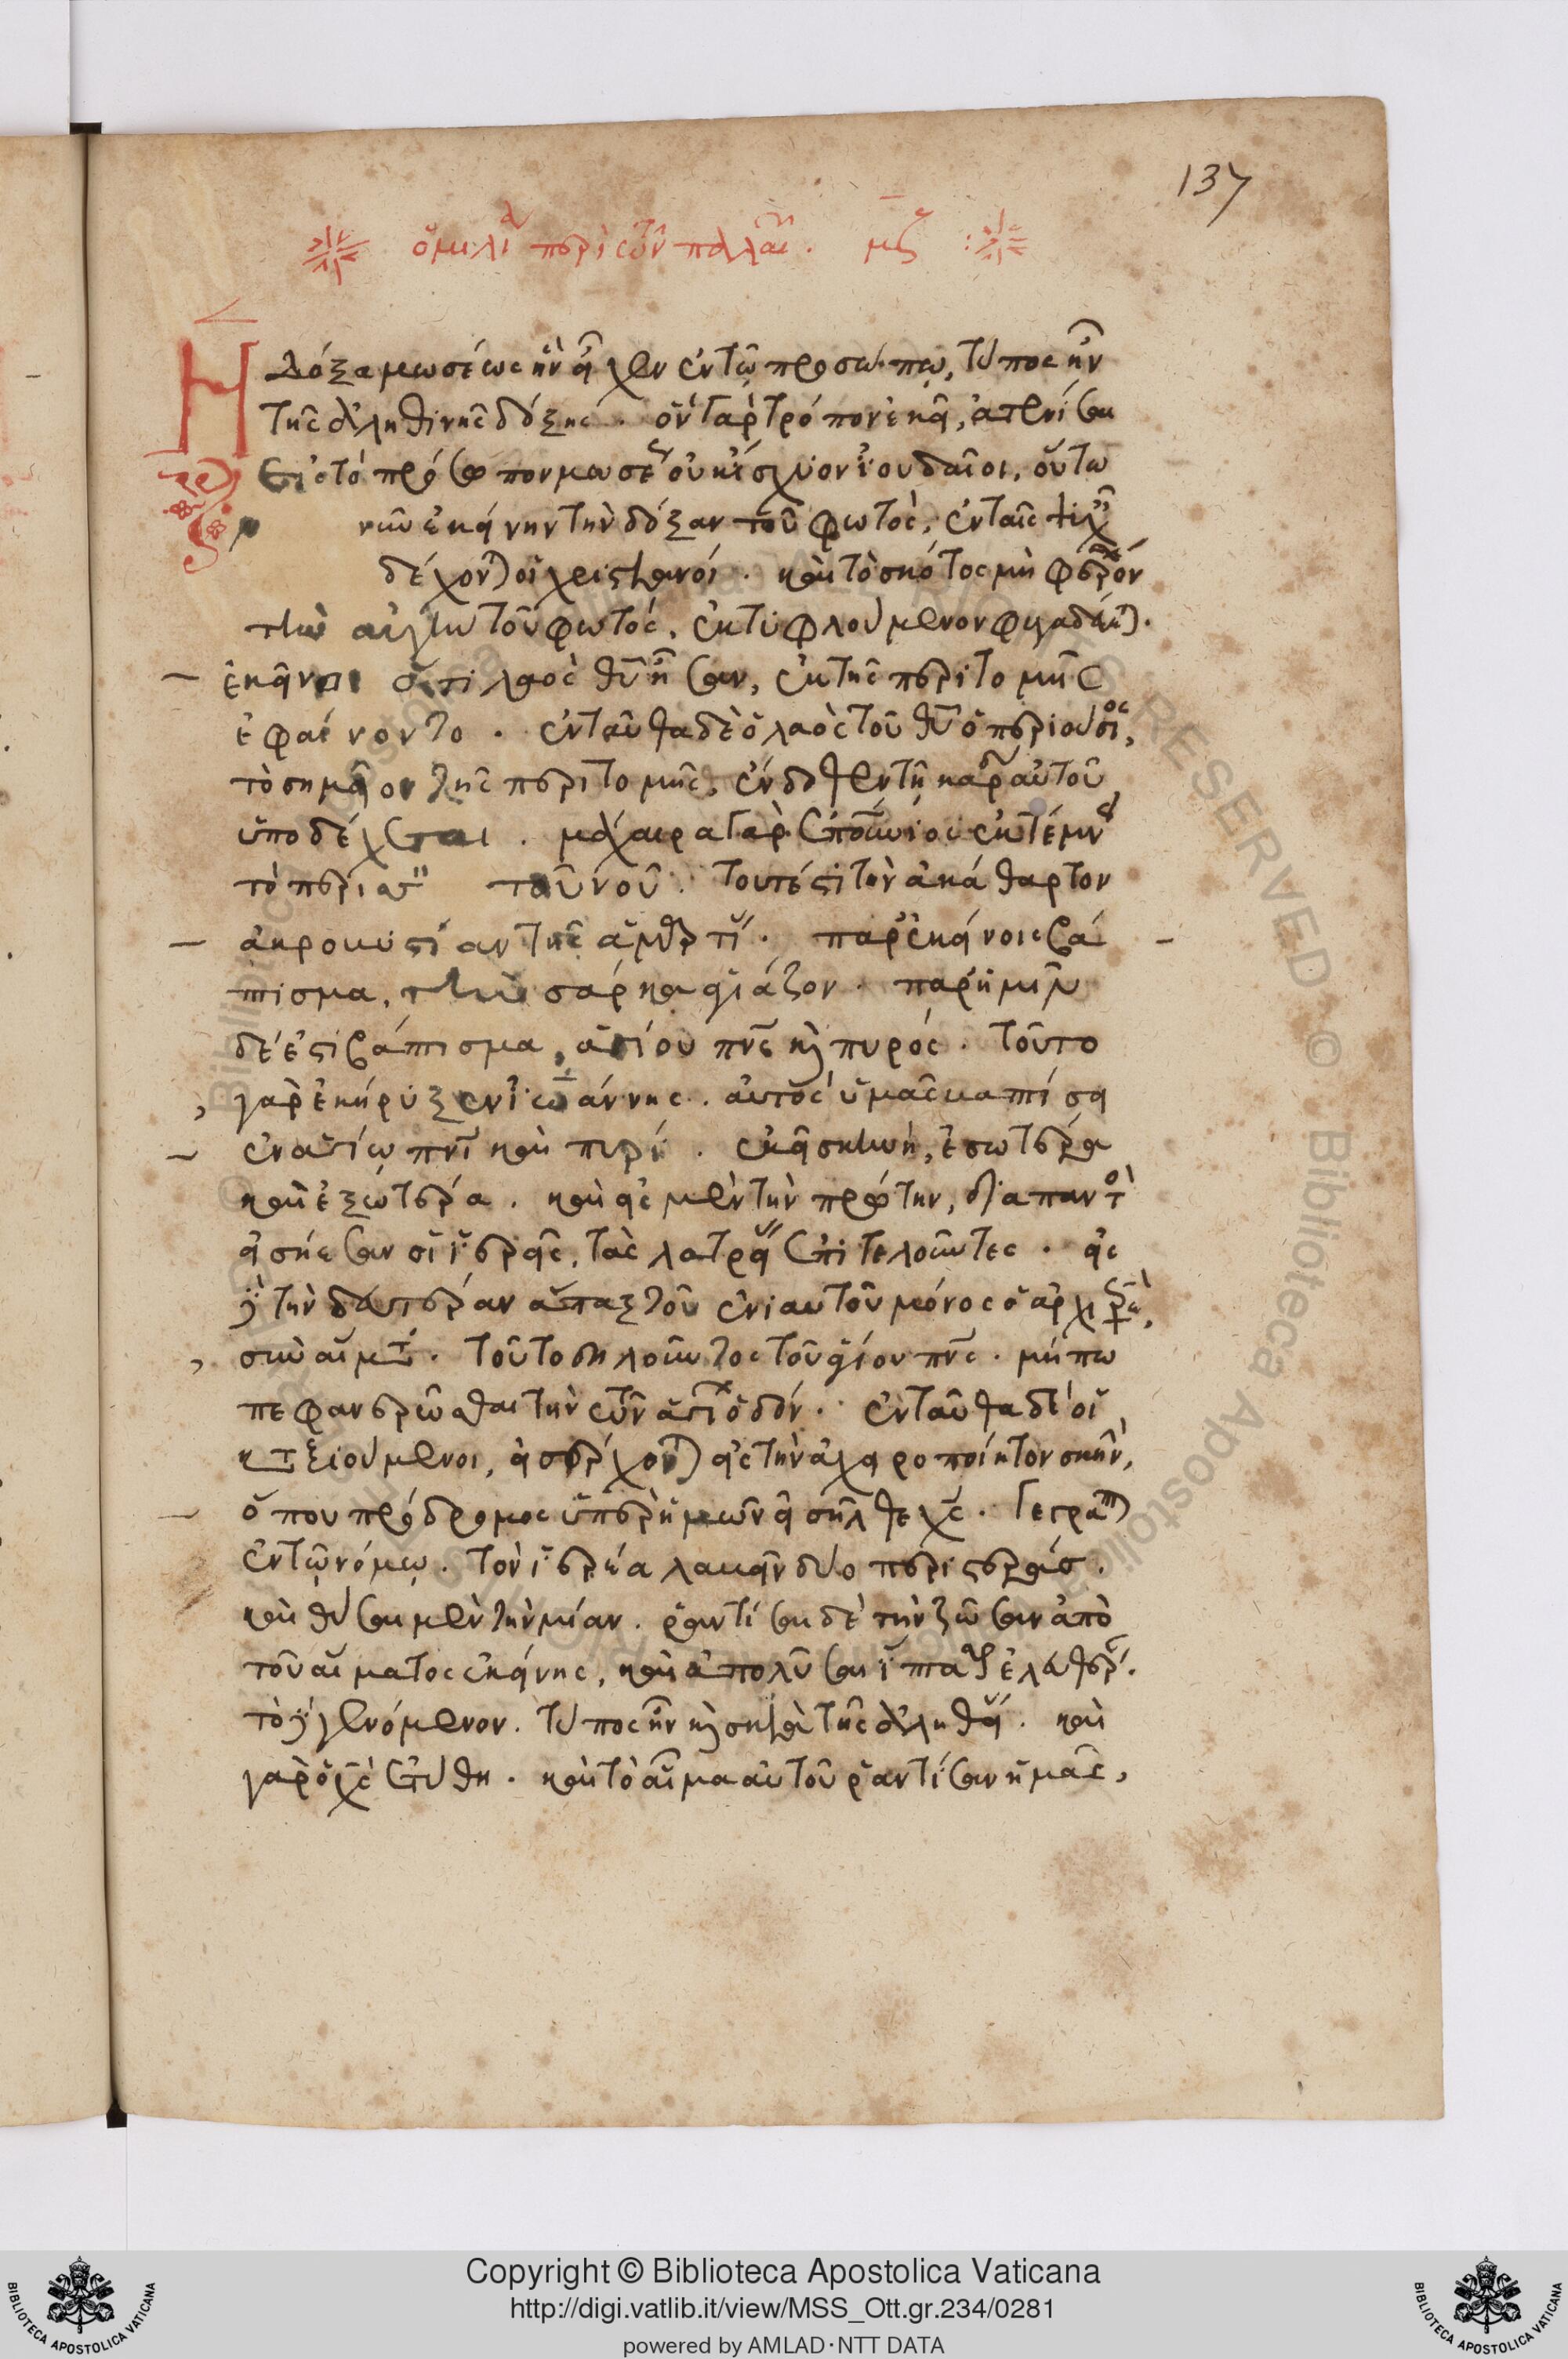 137
ὁμιλία περὶ τῶν παλαιῶν. μζ
Η δόξα μωσέως ἣν εἶχεν ἐν τῷ προσώπω, τύπος ἦν
τῆς ἀληθινῆς δόξης. ὃν γὰρ τρόπον ἐκεῖ, ἀτενίσαι
εἰς τὸ πρόσωπον μωσέως οὐκ ἴσχυον ἰουδαῖοι, οὕτω
νῦν ἐκείνην τὴν δόξαν τοῦ φωτὸς, ἐν ταῖς ψυχαῖς
δέχονται οἱ χριστιανοί. καὶ τὸ σκότος μὴ φέρον
τὴν αἴγλην τοῦ φωτός, ἐκτυφλούμενον φυγαδεύεται.
ἐκεῖνοι ὅτι λαὸς θυ ἦσαν, ἐκ τῆς περιτομῆς
ἐφαίνοντο. ἐνταῦθα δὲ ὁ λαὸς τοῦ θυ ὁ περιούσιος,
τὸ σημεῖον τῆς περιτομῆς, ἔνδοθεν τῇ καρδία αὐτοῦ
ὑποδέχεται. μάχαιρα γὰρ ἐπουράνιος ἐκτέμνει
τὸ περίττον τοῦ νοῦ. τουτέστι τὴν ἀκάθαρτον
ἀκροβυστίαν τῆς ἁμαρτίας. παρ' ἐκείνοις βά
πτισμα, τὴν σάρκα ἁγιάζον. παρ' ἡμῖν
δέ ἐστι βάπτισμα, ἁγίου πνς κὶ πυρός. τοῦτο
γὰρ ἐκήρυξεν ἰωάννης. αὐτὸς ὑμᾶς βαπτίσει
ἐν ἁγίω πνι καὶ πυρί. ἐκεῖ σκηνὴ, ἐσωτέρα
καὶ ἐξωτέρα. καὶ εἰς μὲν τὴν πρώτην, διαπαντὸς
εἰσήεσαν οἱ ἱερεῖς, τὰς λατρείας ἐπιτελοῦντες. εἰς
δὲ τὴν δευτέραν ἅπαξ τοῦ ἐνιαυτοῦ μόνος ὁ ἀρχιερεὺς,
σὺν αἵματι. τοῦτο δηλοῦντος τοῦ ἁγίου πνς. μήπω
πεφανερῶσθαι τὴν τῶν ἁγίων ὁδόν. ἐνταῦθα δὲ οἱ
καταξιούμενοι, εἰσέρχονται εἰς τὴν ἀχειροποίητον σκηνὴν,
ὅπου πρόδρομος ὑπὲρ ἡμῶν εἰσῆλθε χς. γέγραπται
ἐν τῷ νόμω. τὸν ἱερέα λαβεῖν δύο περιστεράς.
καὶ θῦσαι μὲν τὴν μίαν. ῥαντίσαι δὲ τὴν ζῶσαν ἀπὸ
τοῦ αἵματος ἐκείνης, καὶ ἀπολῦσαι ἵπτασθαι ἐλευθέραν.
τὸ δὲ γενόμενον. τύπος ἦν κὶ σκιὰ τῆς ἀληθείας. καὶ
γὰρ ὁ χς ἐτύθη. καὶ τὸ αἷμα αὐτοῦ ῥαντίσαν ἡμᾶς,
Copyright © Biblioteca Apostolica Vaticana
http://digi.vatlib.it/view/MSS_Ott.gr.234/0281
powered by AMLAD·NTT DATA